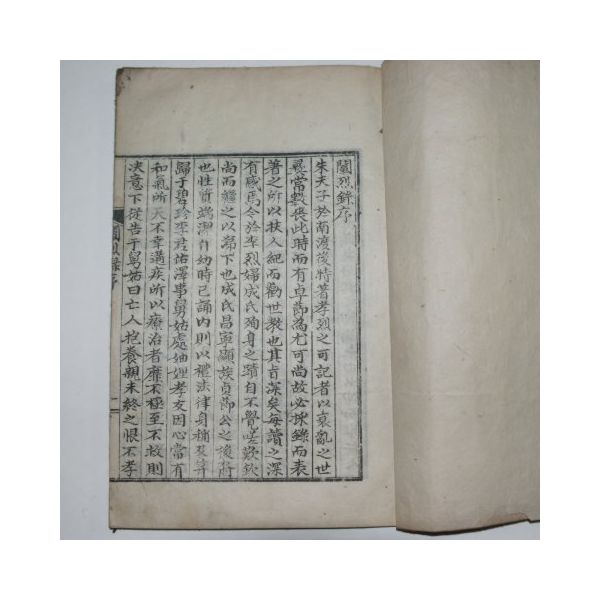 闡烈錄序
朱夫子於南渡後特著孝烈之可記者以衰亂之世
彛常斁喪此時而有卓節為尤可尚故必採錄而表
著之所以扶人紀而勸世敎也其旨深矣每讀之深
有感焉今於李烈婦成氏殉身之蹟自不覺嗟歎欽
尚而繼之以涕下也成氏昌寧顯族貞節公之後裔
也性質端潔自幼時已誦内則以禮法律身稱及笄
歸于碧珍李君祐澤事舅姑處妯娌孝友因心常有
和氣所天不幸遘疾所以療治者靡不極至不救則
决意下從告于舅姑曰亡人抱養親未終之恨不孝
烈錄序